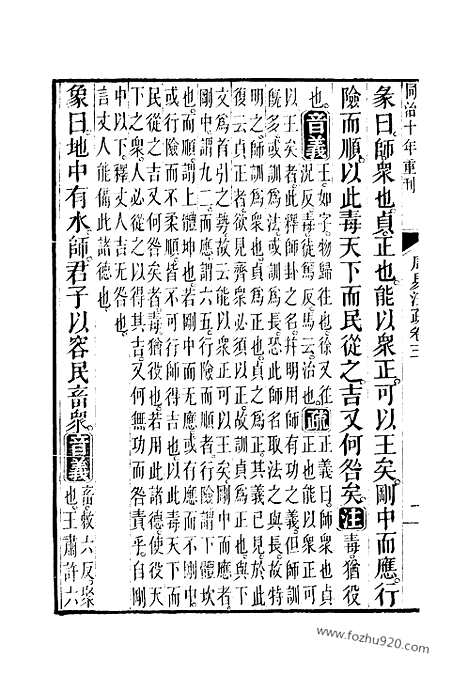 同治十年重刊
周易注疏卷三
二
彖曰師衆也貞正也能以衆正可以王矣剛中而應行
險而順以此毒天下而民從之吉又何咎矣注毒猶役
也音義王如字物歸往也徐又往
況反毒徒篤反馬云治也疏正義曰師衆也貞
正也能以衆正可
以王矣者此釋師卦之名并明用師有功之義但師訓
既多或訓爲法或訓爲長恐此師名取法之與長故特
明之師訓爲衆也貞爲正也其義已見於此
復云貞正者欲見齊衆必須以正故訓貞爲正也與下
文爲首引之勢故云能以衆正可以王矣剛中而應者
剛中謂九二而應謂六五行險而順者行險謂下體坎
也而順謂上體坤也若剛中而無應或有應而不剛中
或行險而不柔順皆不可行師得吉也以此毒天下而
民從之吉又何咎矣者毒猶役也若用此諸德使役天
下之衆人必從之以得其吉又何無功而咎責乎自剛
中以下釋丈人吉无咎也
言丈人能備此諸德也
象曰地中有水師君子以容民畜衆音義畜敕六反聚
也王肅許六
www.fozhu920.com